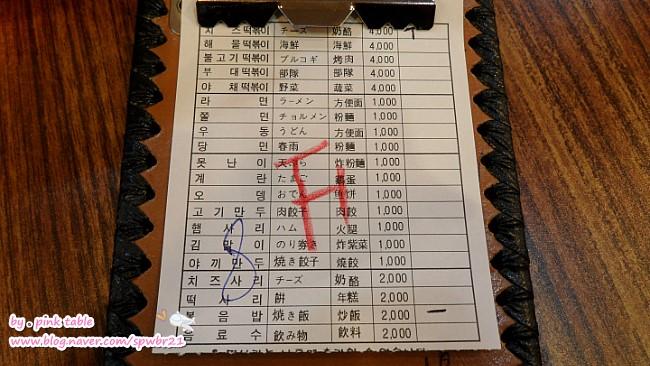 치 즈 떡볶이 チーズ 奶酪 4,000
해 물 떡볶이 海鮮 海鮮 4,000
불고기 떡볶이 プルコギ 烤肉 4,000
부 대 떡볶이 部隊 部隊 4,000
야 채 떡볶이 野菜 蔬菜 4,000
라 면 ラーメン 方便面 1,000
쫄 면 チョルメン 粉麵 1,000
우 동 うどん 方便面 1,000
당 면 春雨 粉麵 1,000
못 난 이 天ぷら 炸粉麵 1,000
계 란 たまご 鷄蛋 1,000
오 뎅 おでん 鱼饼 1,000
고 기 만 두 肉餃子 肉餃 1,000
햄 사 리 ハム 火腿 1,000
김 말 이 のり巻き 炸紫菜 1,000
야 끼 만 두 焼き餃子 燒餃 1,000
치 즈 사 리 チーズ 奶酪 2,000
떡 사 리 餅 年糕 2,000
볶 음 밥 焼き飯 炒飯 2,000
음 료 수 飲み物 飮料 2,000
by . pink table
www.blog.naver.com/spwbr21